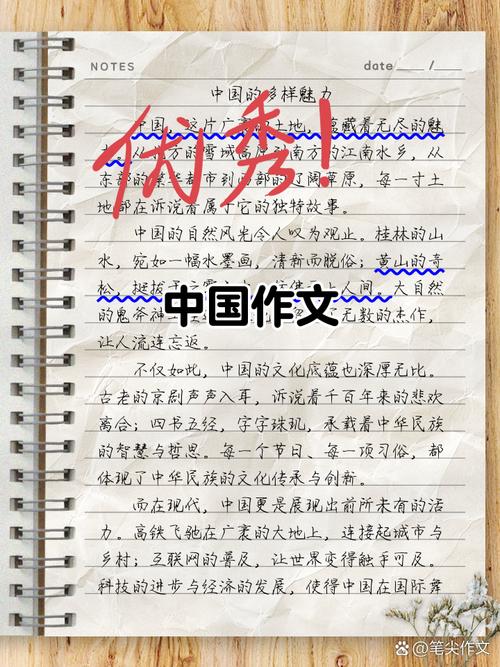 NOTES
date /
中国的多样魅力
中国，这片广袤的土地，蕴藏着无尽的魅
方的雪域高原到南方的江南水乡，从
东部的繁华都市到西部的辽阔草原，每一寸土
地都在诉说着属于它的独特故事。
优秀！
中国的自然风光令人叹为观止。桂林的山
水，宛如一幅水墨画，清新而脱俗；黄山的奇
松，挺拔 人间。大自然
的鬼斧神 了无数的杰作，
让人流连忘返。
中国作文
不仅如此，中国的文化底蕴也深厚无比。
古老的京剧声声入耳，诉说着千百年来的悲欢
离合；四书五经，字字珠玑，承载着中华民族
的智慧与哲思。每一个节日、每一项习俗，都
体现了中华民族的文化传承与创新。
而在现代，中国更是展现出前所未有的活
力。高铁飞驰在广袤的大地上，连接起城市与
乡村；互联网的普及，让世界变得触手可及。
科技的进步与经济的发展，使得中国在国际舞
@笔尖作文